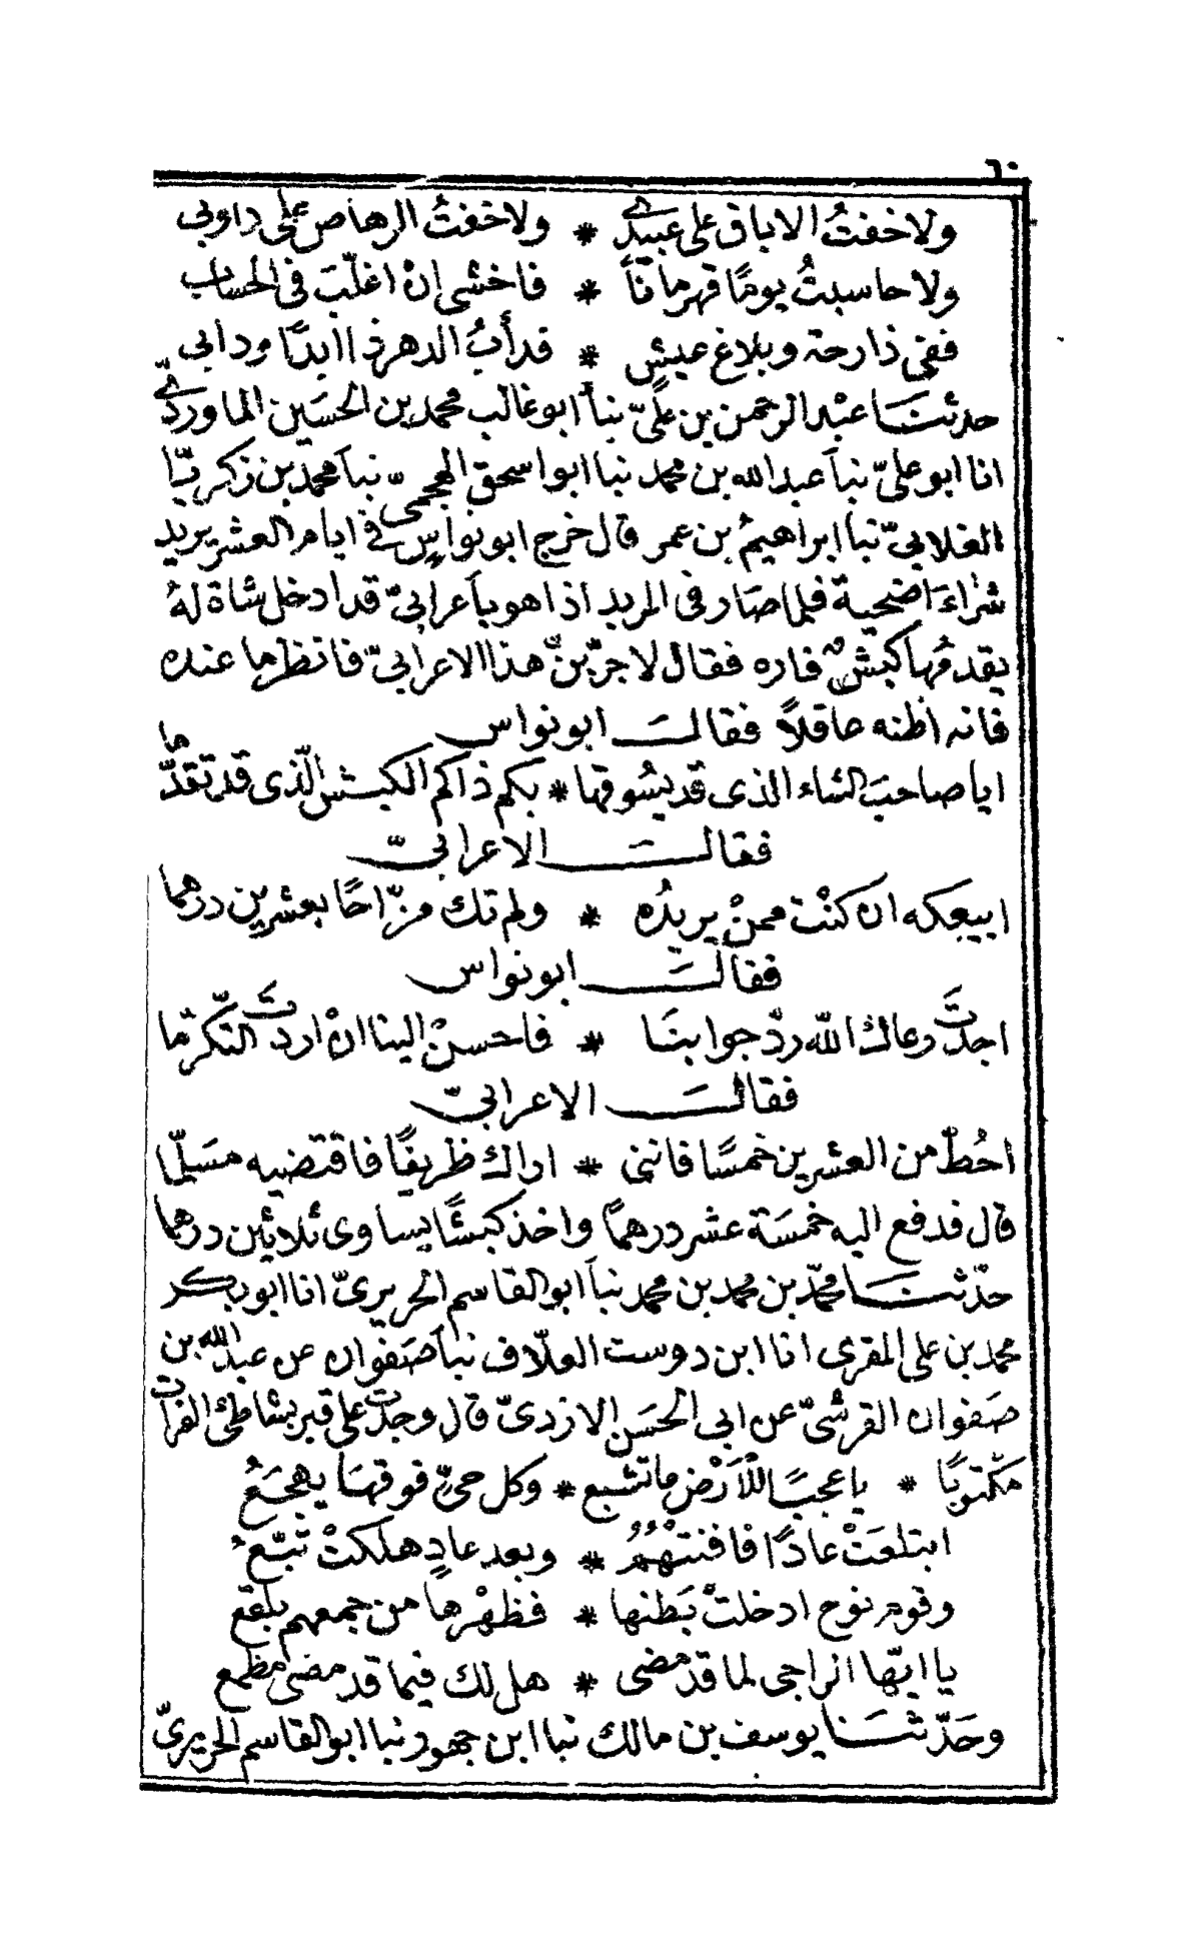 ٦٠
ولا خفتُ الاباق على عبيدى * ولا خفتُ الرهاص على دوابى
ولا حاسبتُ يومًا قهرمانًا * فاخشى انْ اغلّبَ فى الحساب
ففى ذا رحة وبلاغ عيشٍ * فدأبُ الدهر ذا ابدًا ودابى
حدثنا عبْد الرحمن بن علىّ نبأ ابو غالب محمد بن الحسَين الماوردىّ
انا ابو علىّ نبأ عبد الله بن محمد نبا ابو اسحق الهجيمىّ نبأ محمد بن زكريّا
الغلابىّ نبا ابراهيمُ بن عمر قال خرج ابو نواسٍ فى ايام العشر يريد
شرٰاءَ اضحيةٍ فلما صَار فى المربد اذا هو بأعرابىّ قد ادخل شاة لهُ
يقدمُها كبشٌ فاره فقال لاجرّبنّ هذا الاعرابىّ فانظر ما عنده
فانه اظنه عاقلاً فقالَ ابو نواس
ايا صاحبَ الشاء الذى قد يسُوقها * بكم ذاكم الكبش الّذى قد تقدّما
فقالَ الاعرابىّ
ابيعكه ان كنْت ممنْ يريدُه * ولم تك مزّاحًا بعشرين درهما
فقالَ ابو نواس
اجدْتَ رعاك الله ردّ جوابنَا * فاحسنْ الينا انْ اردْتَ التّكرّما
فقالَ الاعرابىّ
احُطّ من العشرين خمسًا فاننى * اراك ظريفًا فاقتضيه مسَلّما
قال فدفع اليه خمسَة عشر درهمًا واخذ كبشًا يساوى ثلاثين درهما
حدّثنَا محمّد بن محمد بن محمد نبأ ابو القاسم الحريرىّ انا ابو بكر
محمد بن على المقرى انا ابن دوست العلّاف نبأ صَفوان عن عبد الله بن
صَفوان القرشىّ عن ابى الحسَن الازدىّ قال وجدت على قبر بشاطئ الفرات
مكتوبًا * يا عجبًا للأرْض ما تشبع * وكل حىّ فوقهَا يهجَعُ
ابتلعَتْ عادًا فافنتْهُمُ * وبعد عادٍ هلكتْ تبّعُ
وقوم نوح ادخلتْ بَطنها * فظهْرها من جمعهم بلقع
يا ايّها الراجى لما قد مضى * هل لك فيما قد مضى مطمع
وحَدّثنَا يوسف بن مالك نبا ابن جمهور نبا ابو القاسم الحريرىّ